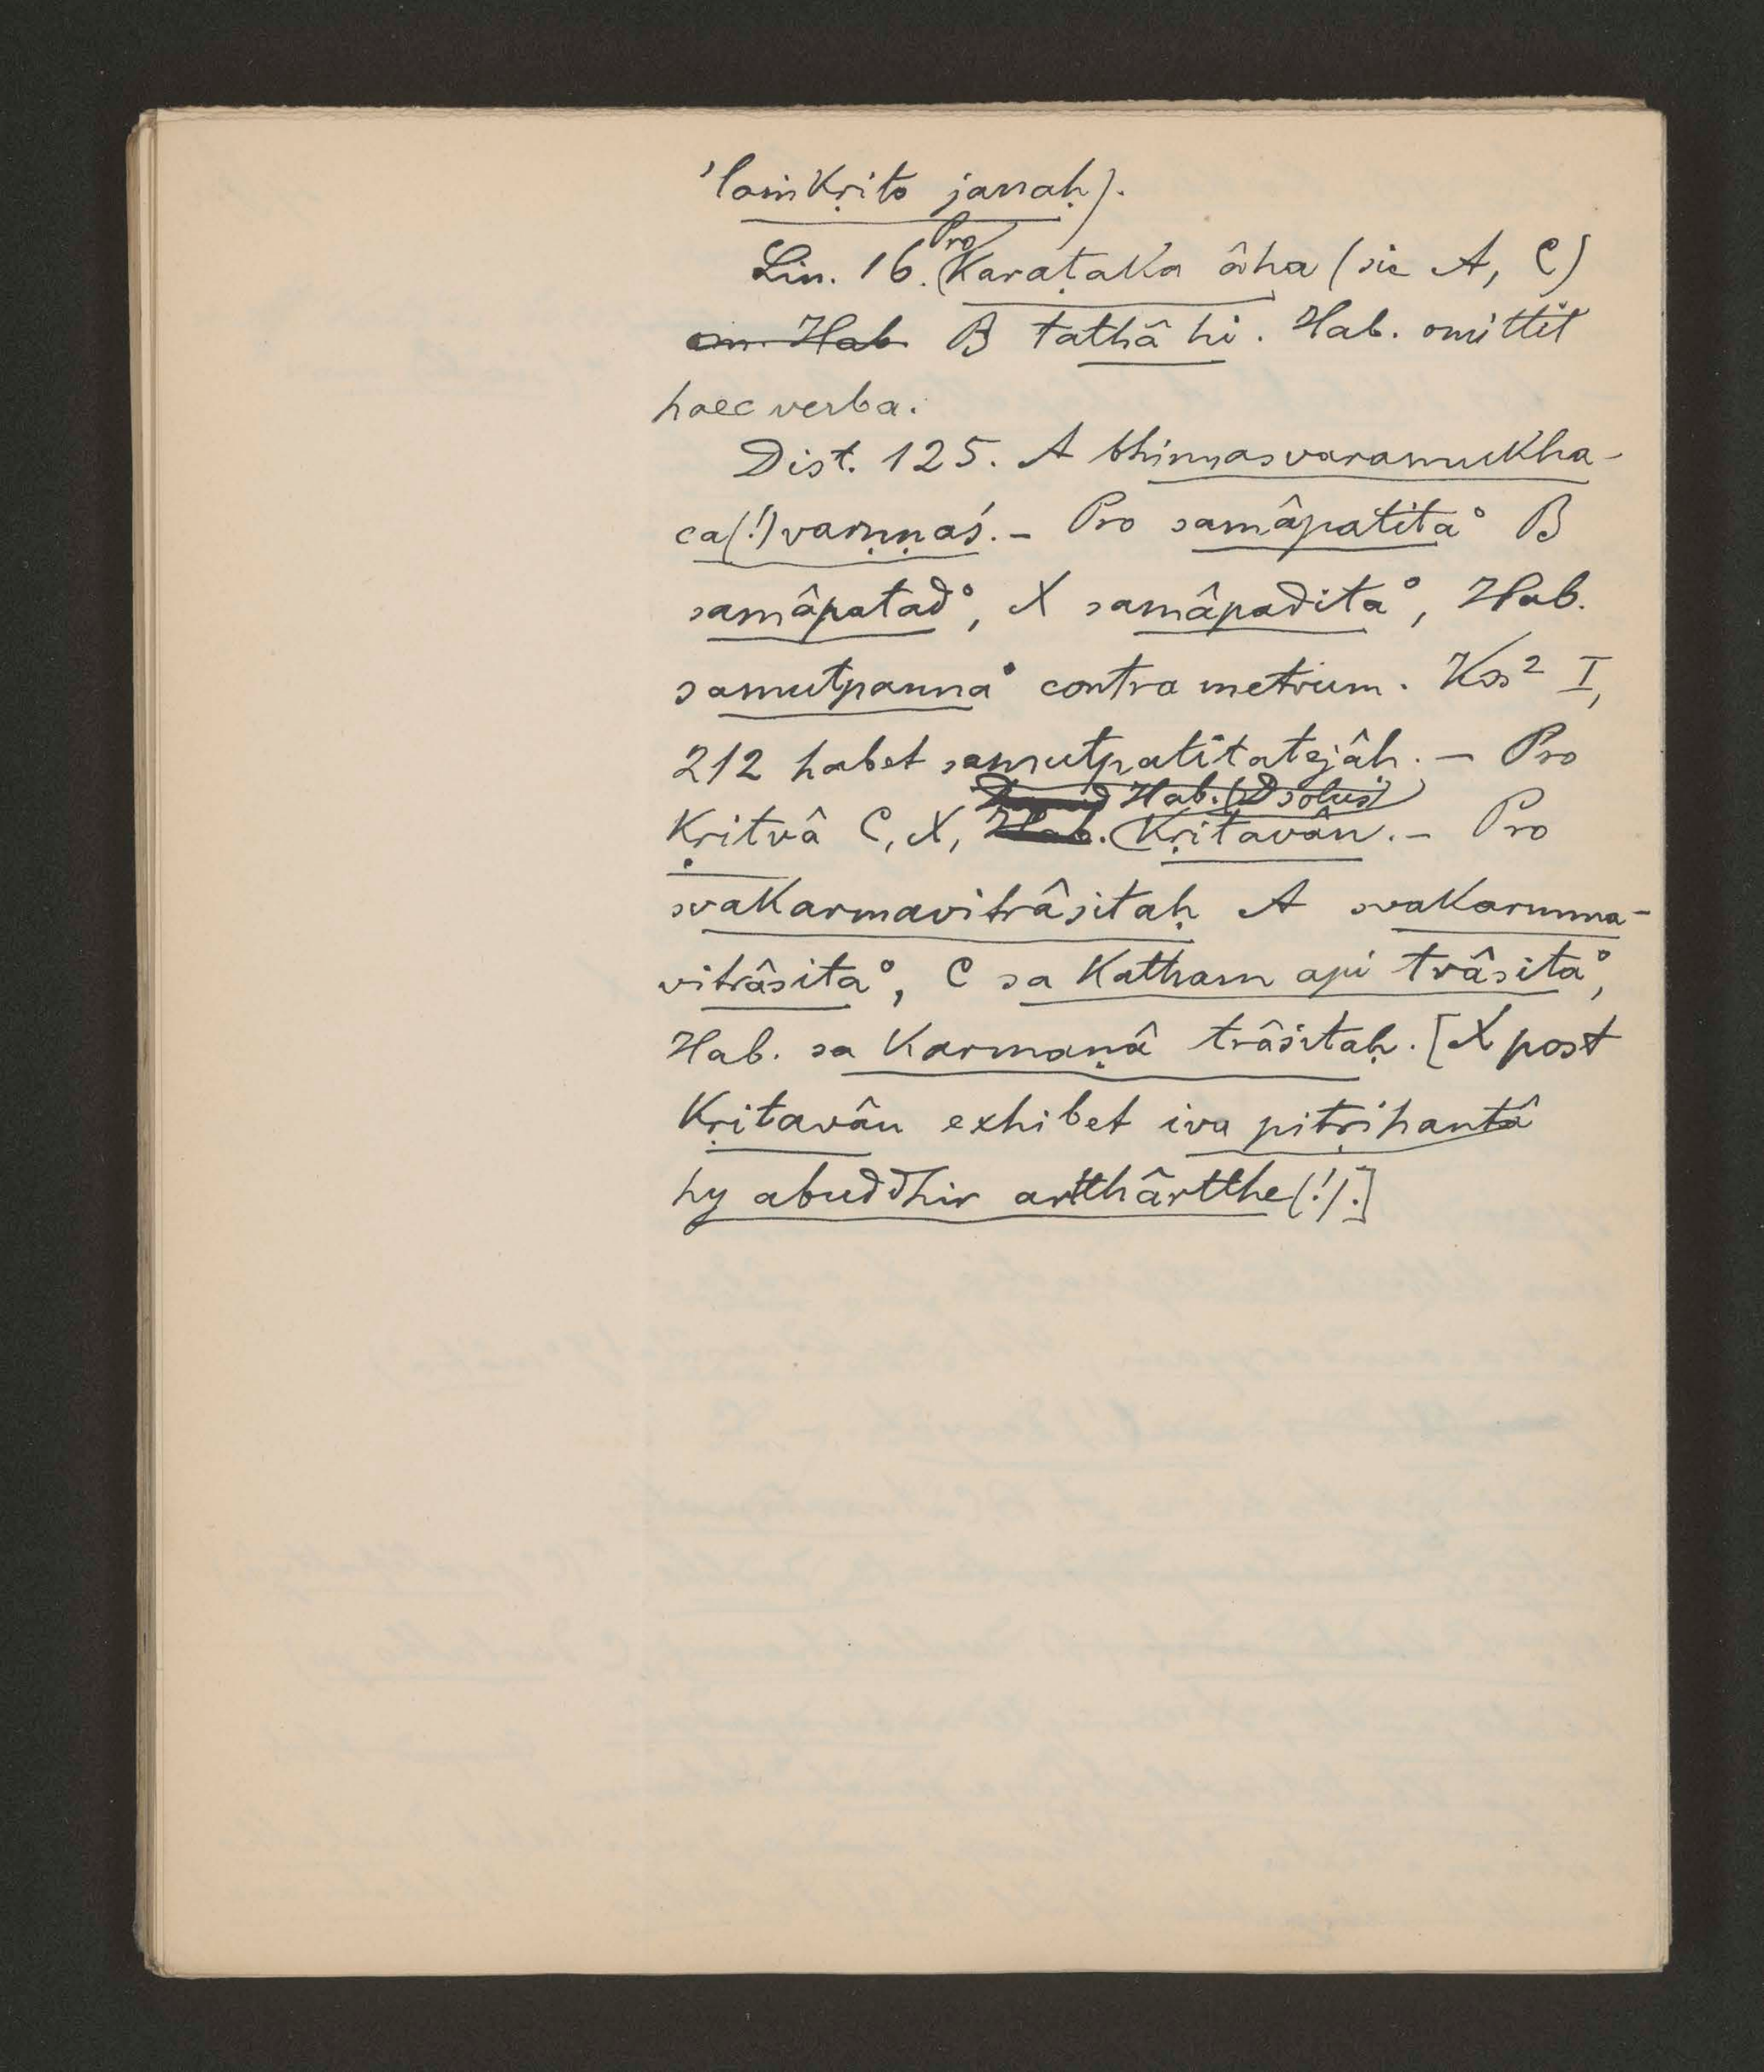 'laṁkṛito janaḥ).
Lin. 16. Pro Karaṭaka âha (sic A, C)
om. Hab. B tathâ hi. Hab. omittit
haec verba.
Dist. 125. A bhinnasvaramukha-
ca(!)varṇṇaś. – Pro samâpatita° B
samâpatad°, X samâpadita°, Hab.
samutpanna° contra metrum. Kss² I,
212 habet samutpatitatejâḥ. – Pro
Kṛitvâ C, X, Hab. (D solus) Kṛitavân. – Pro
svakarmavitrâsitaḥ A svakarmma-
vitrâsita°, C sa katham api trâsita°,
Hab. sa karmaṇâ trâsitaḥ. [X post
Kṛitavân exhibet iva pitṛihantâ
hy abuddhir artthârtthe(!).]